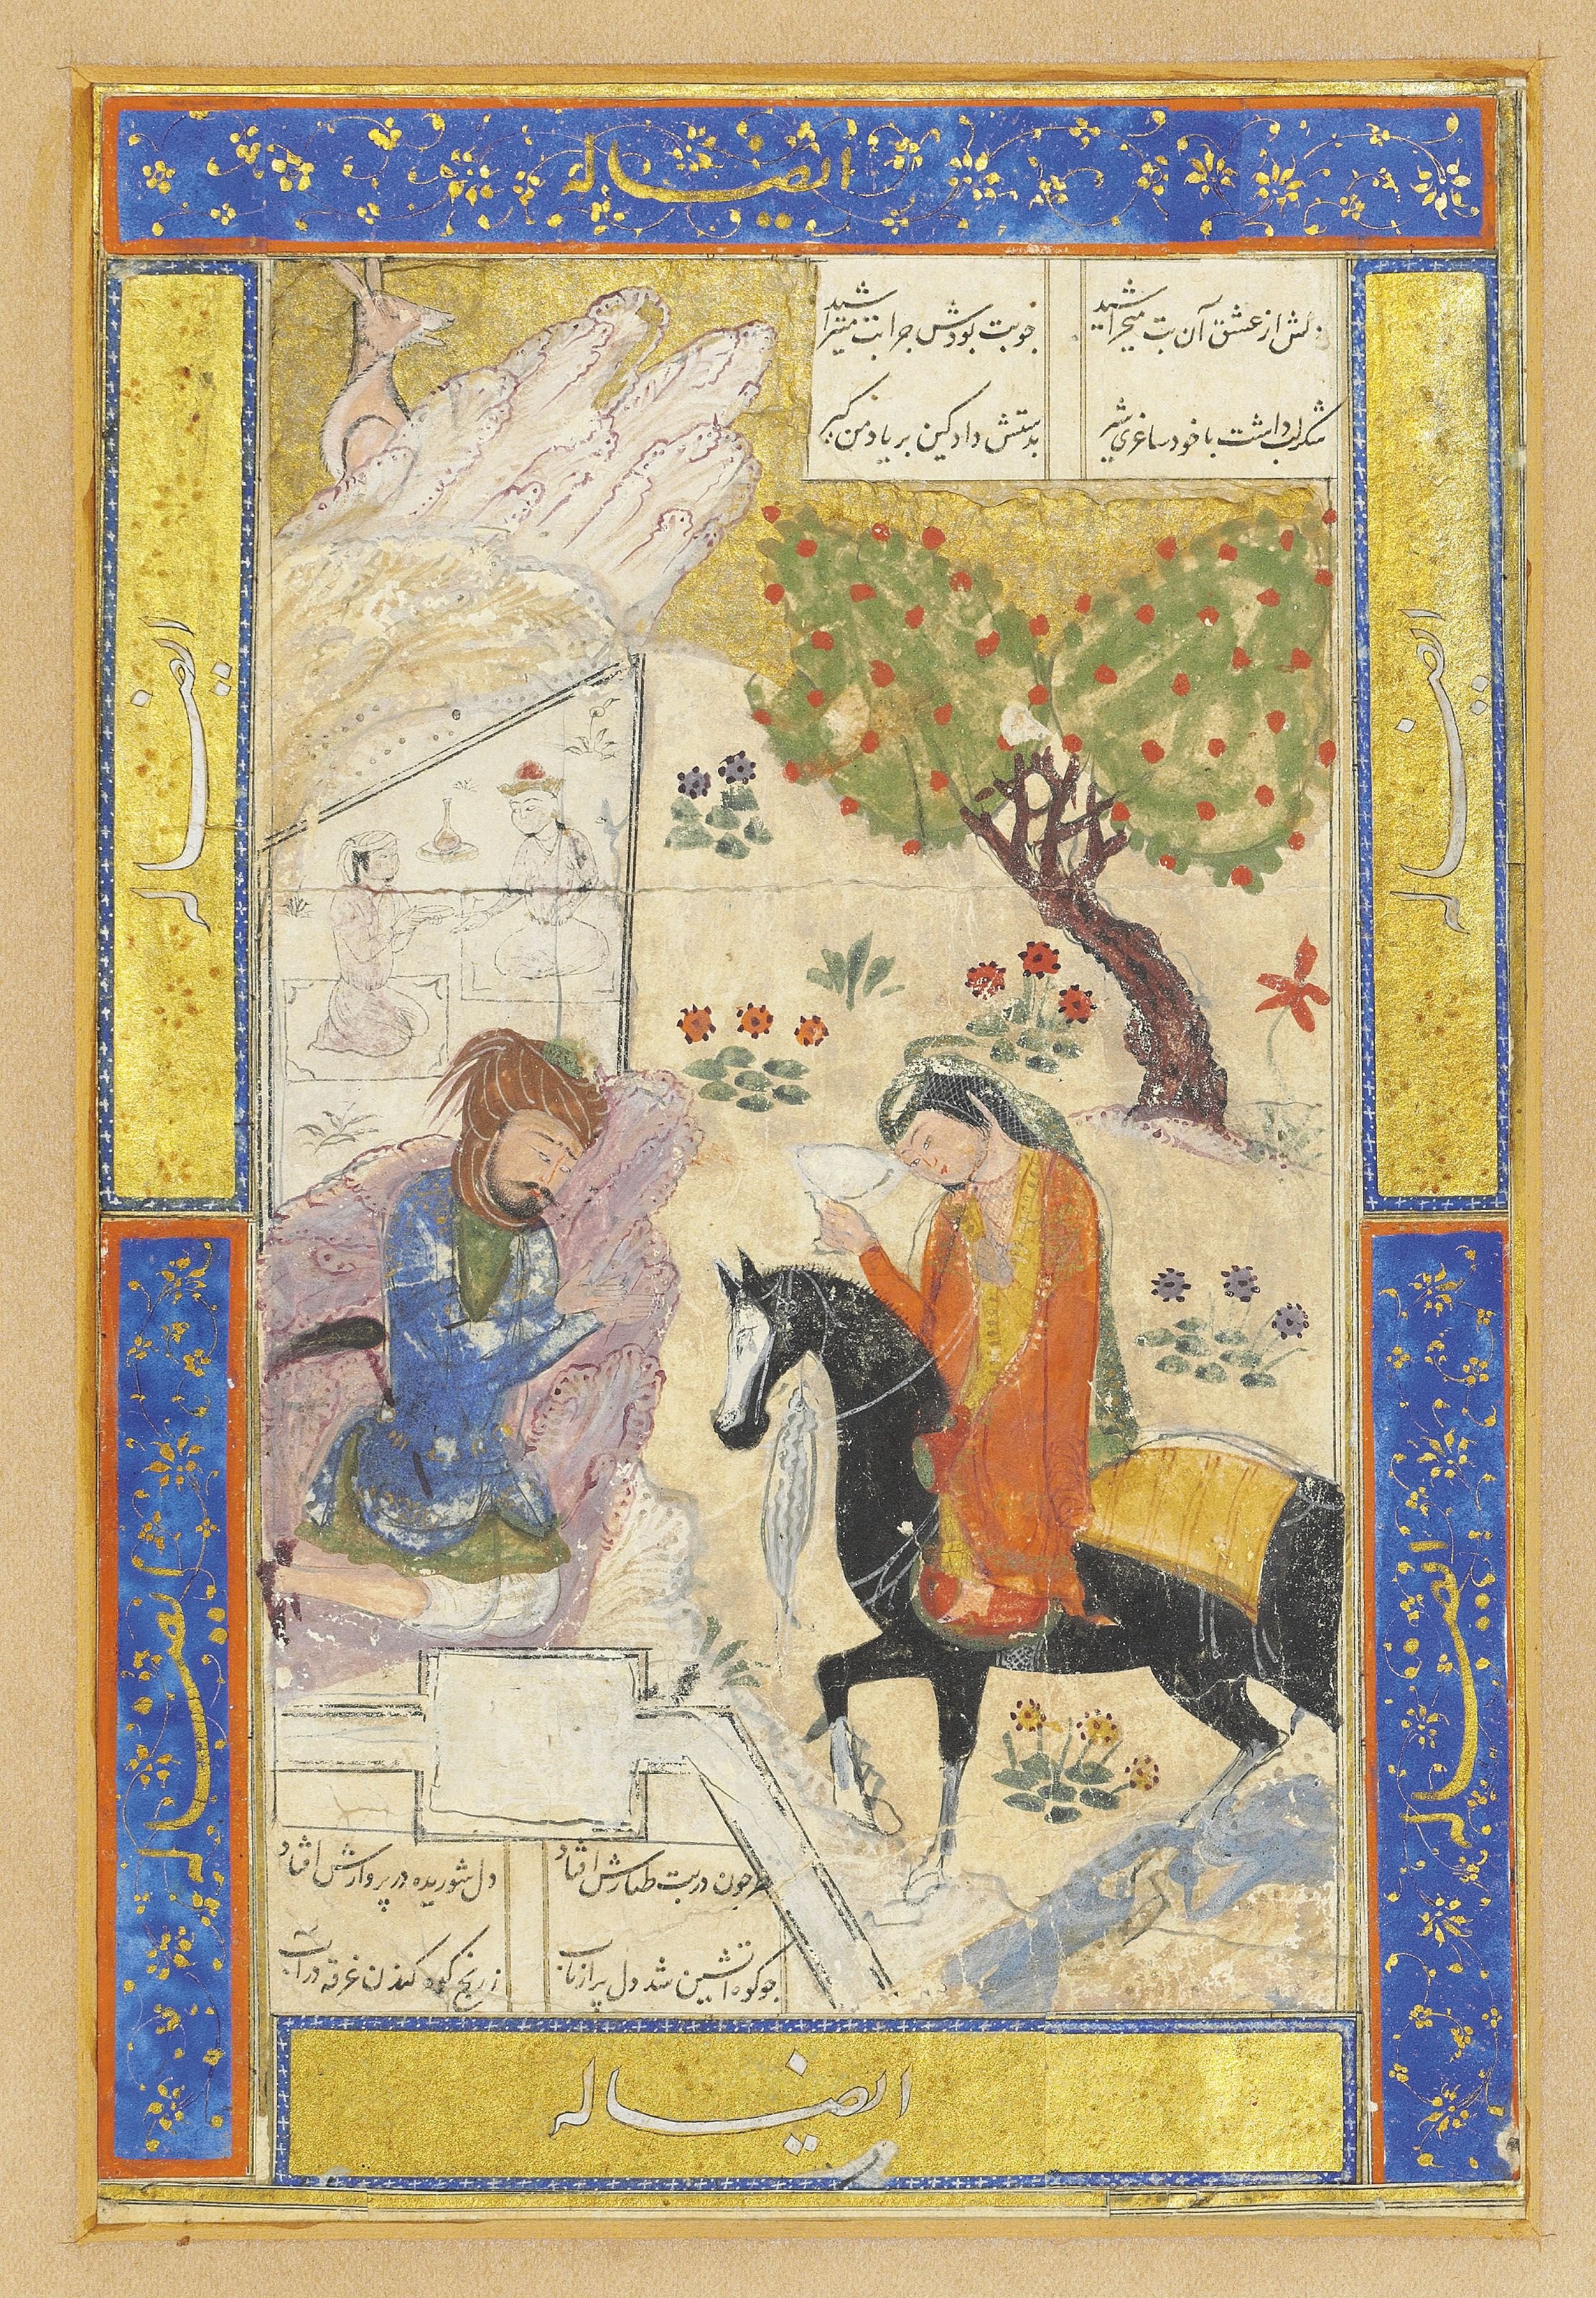 ایضاله
دلش از عشق آن بت میخراشید
جو بت بودش جرا بت میتراشید
شکرلب داشت با خود ساغری شیر
بدستش داد کین بر یاد من گیر
ایضاله
ایضاله
جون در بت طنازش افتاد
دل شوریده در پروازش افتاد
جو کوه آتشین شد دل پر از تاب
ز رنج کوه کندن غرقه در آب
ایضاله
ایضاله
ایضاله